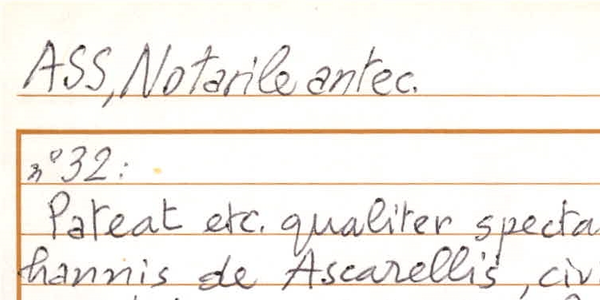 ASS, Notarile antec.
n° 32:
Pateat etc. qualiter specta
hannis de Ascarellis, civi